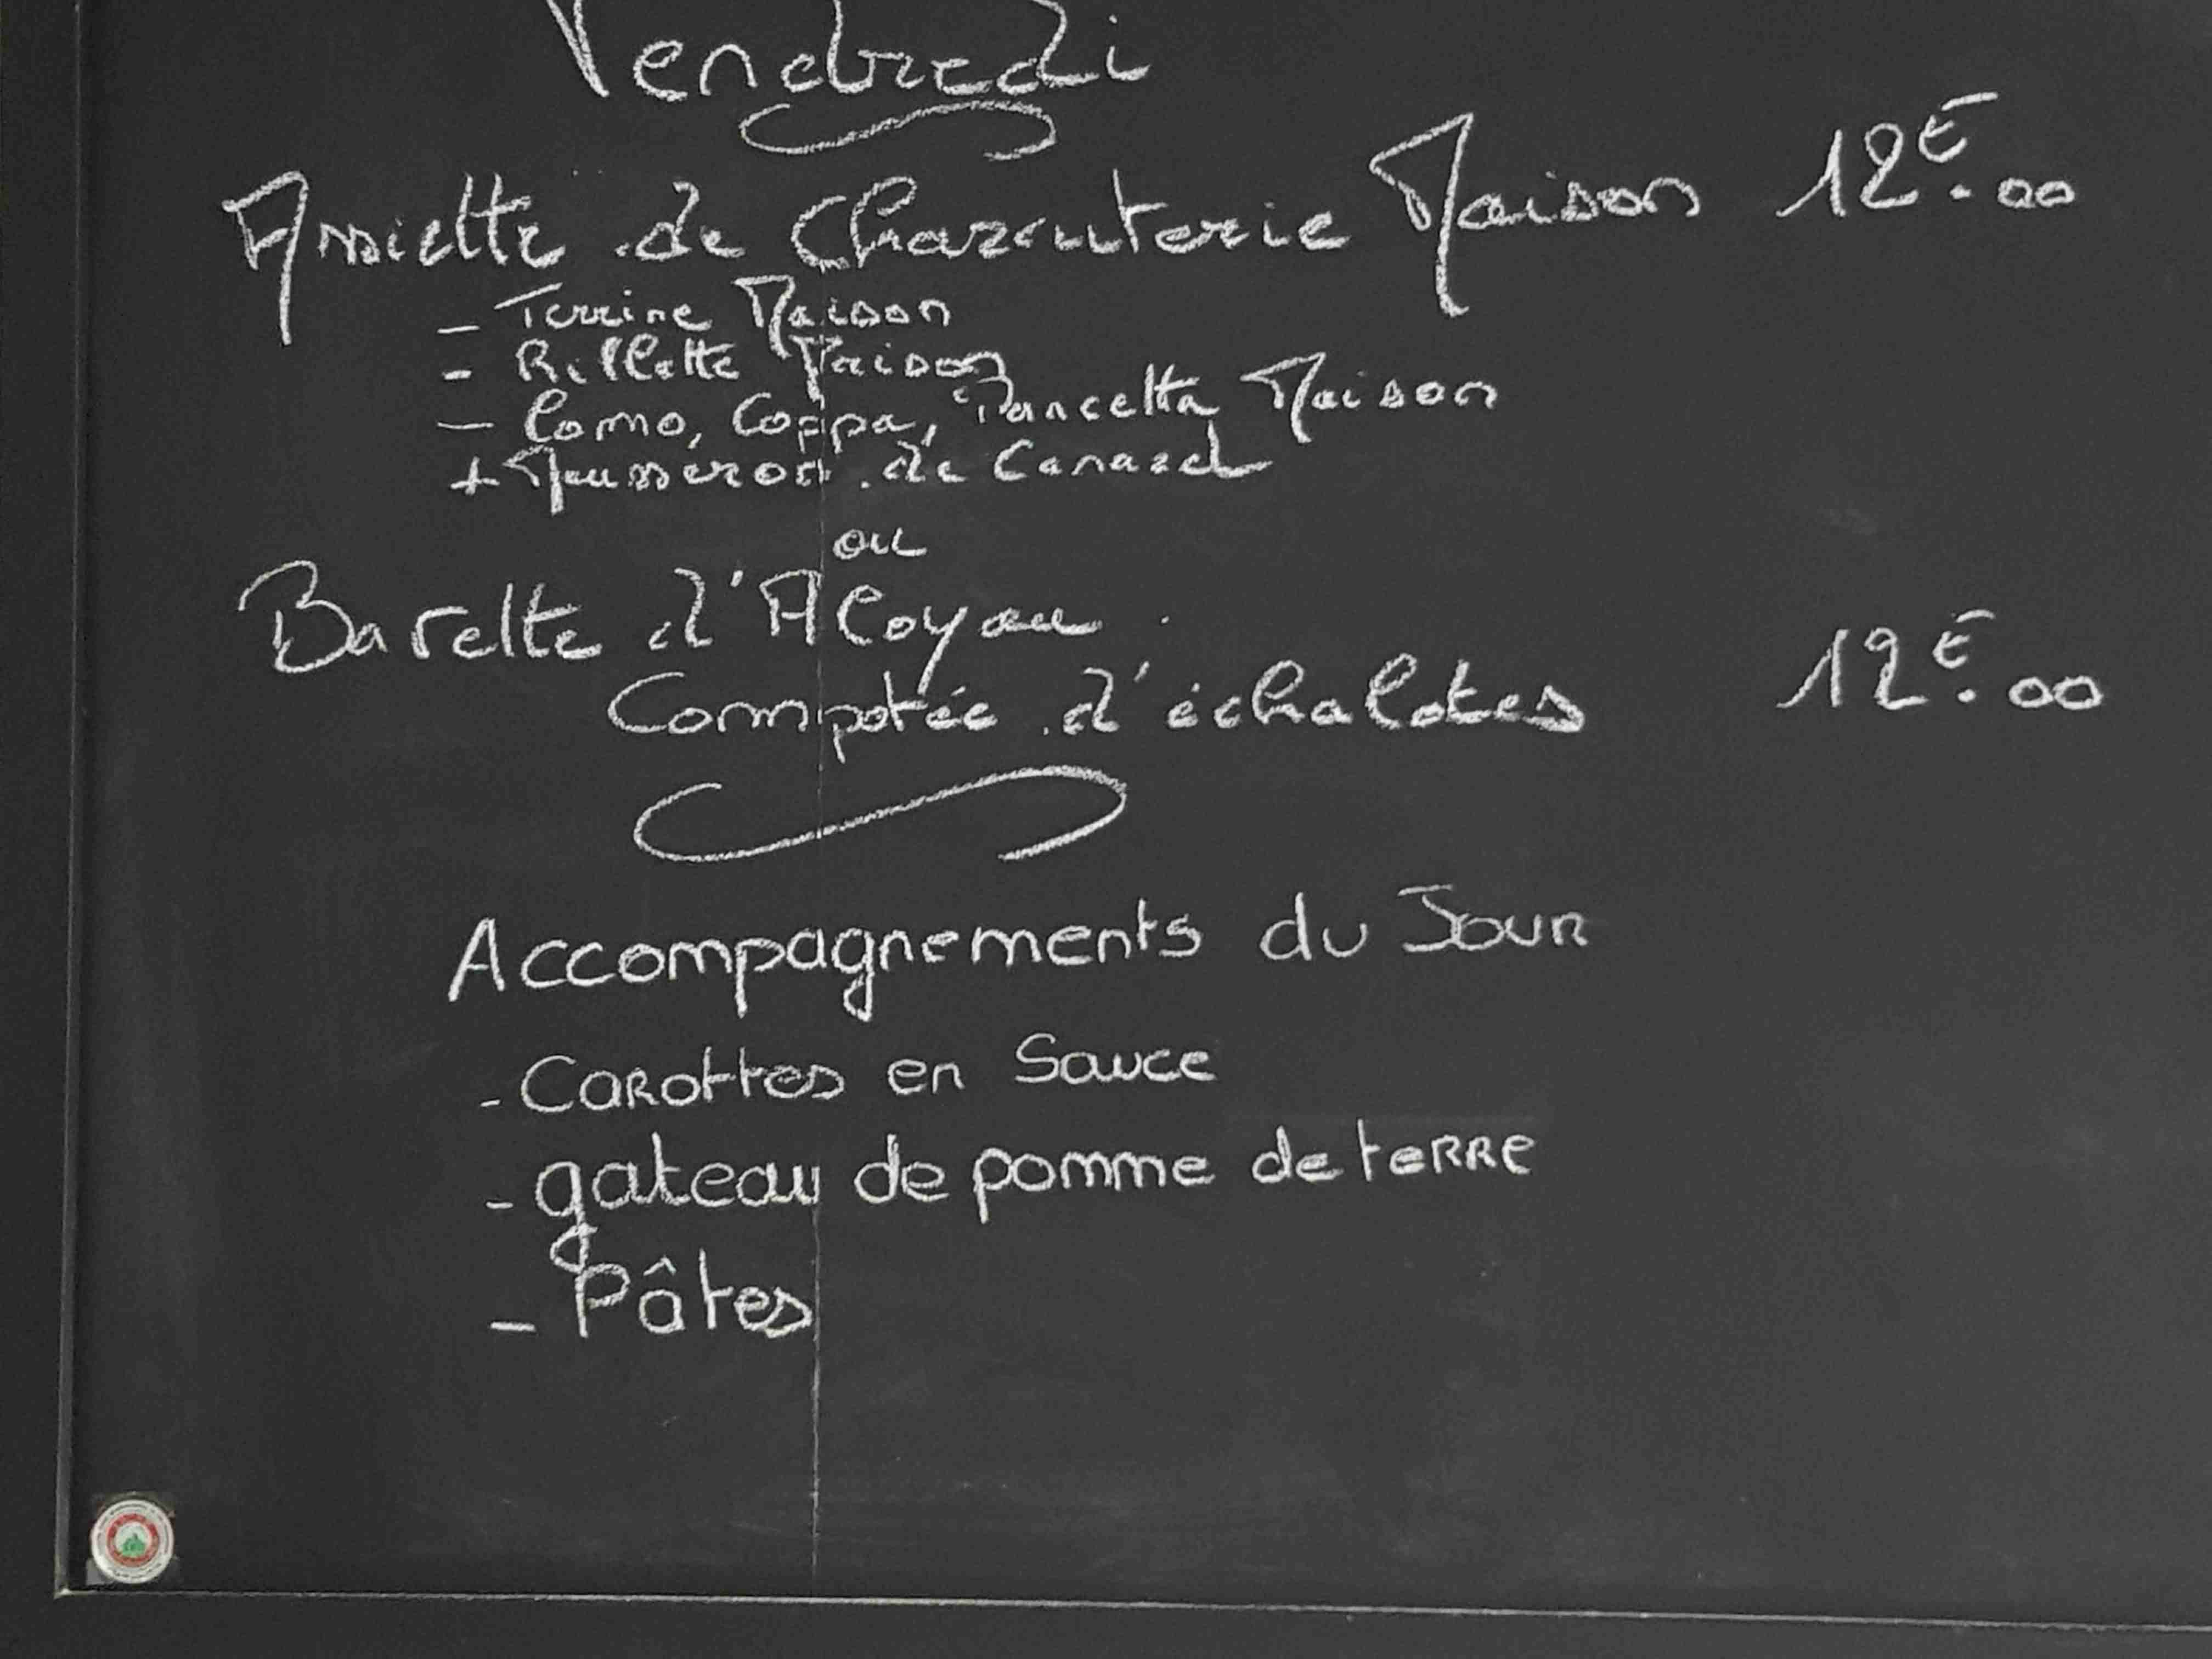 Vendredi
Assiette de Charcuterie Maison 12€.00
- Terrine Maison
- Rillette Maison
- Lomo, Coppa, Pancetta Maison
+ Mousseron de Canard
ou
Bavette d'Aloyau
Compotée d'échalotes 12€.00
Accompagnements du Jour
- Carottes en Sauce
- gateau de pomme de terre
- Pâtes